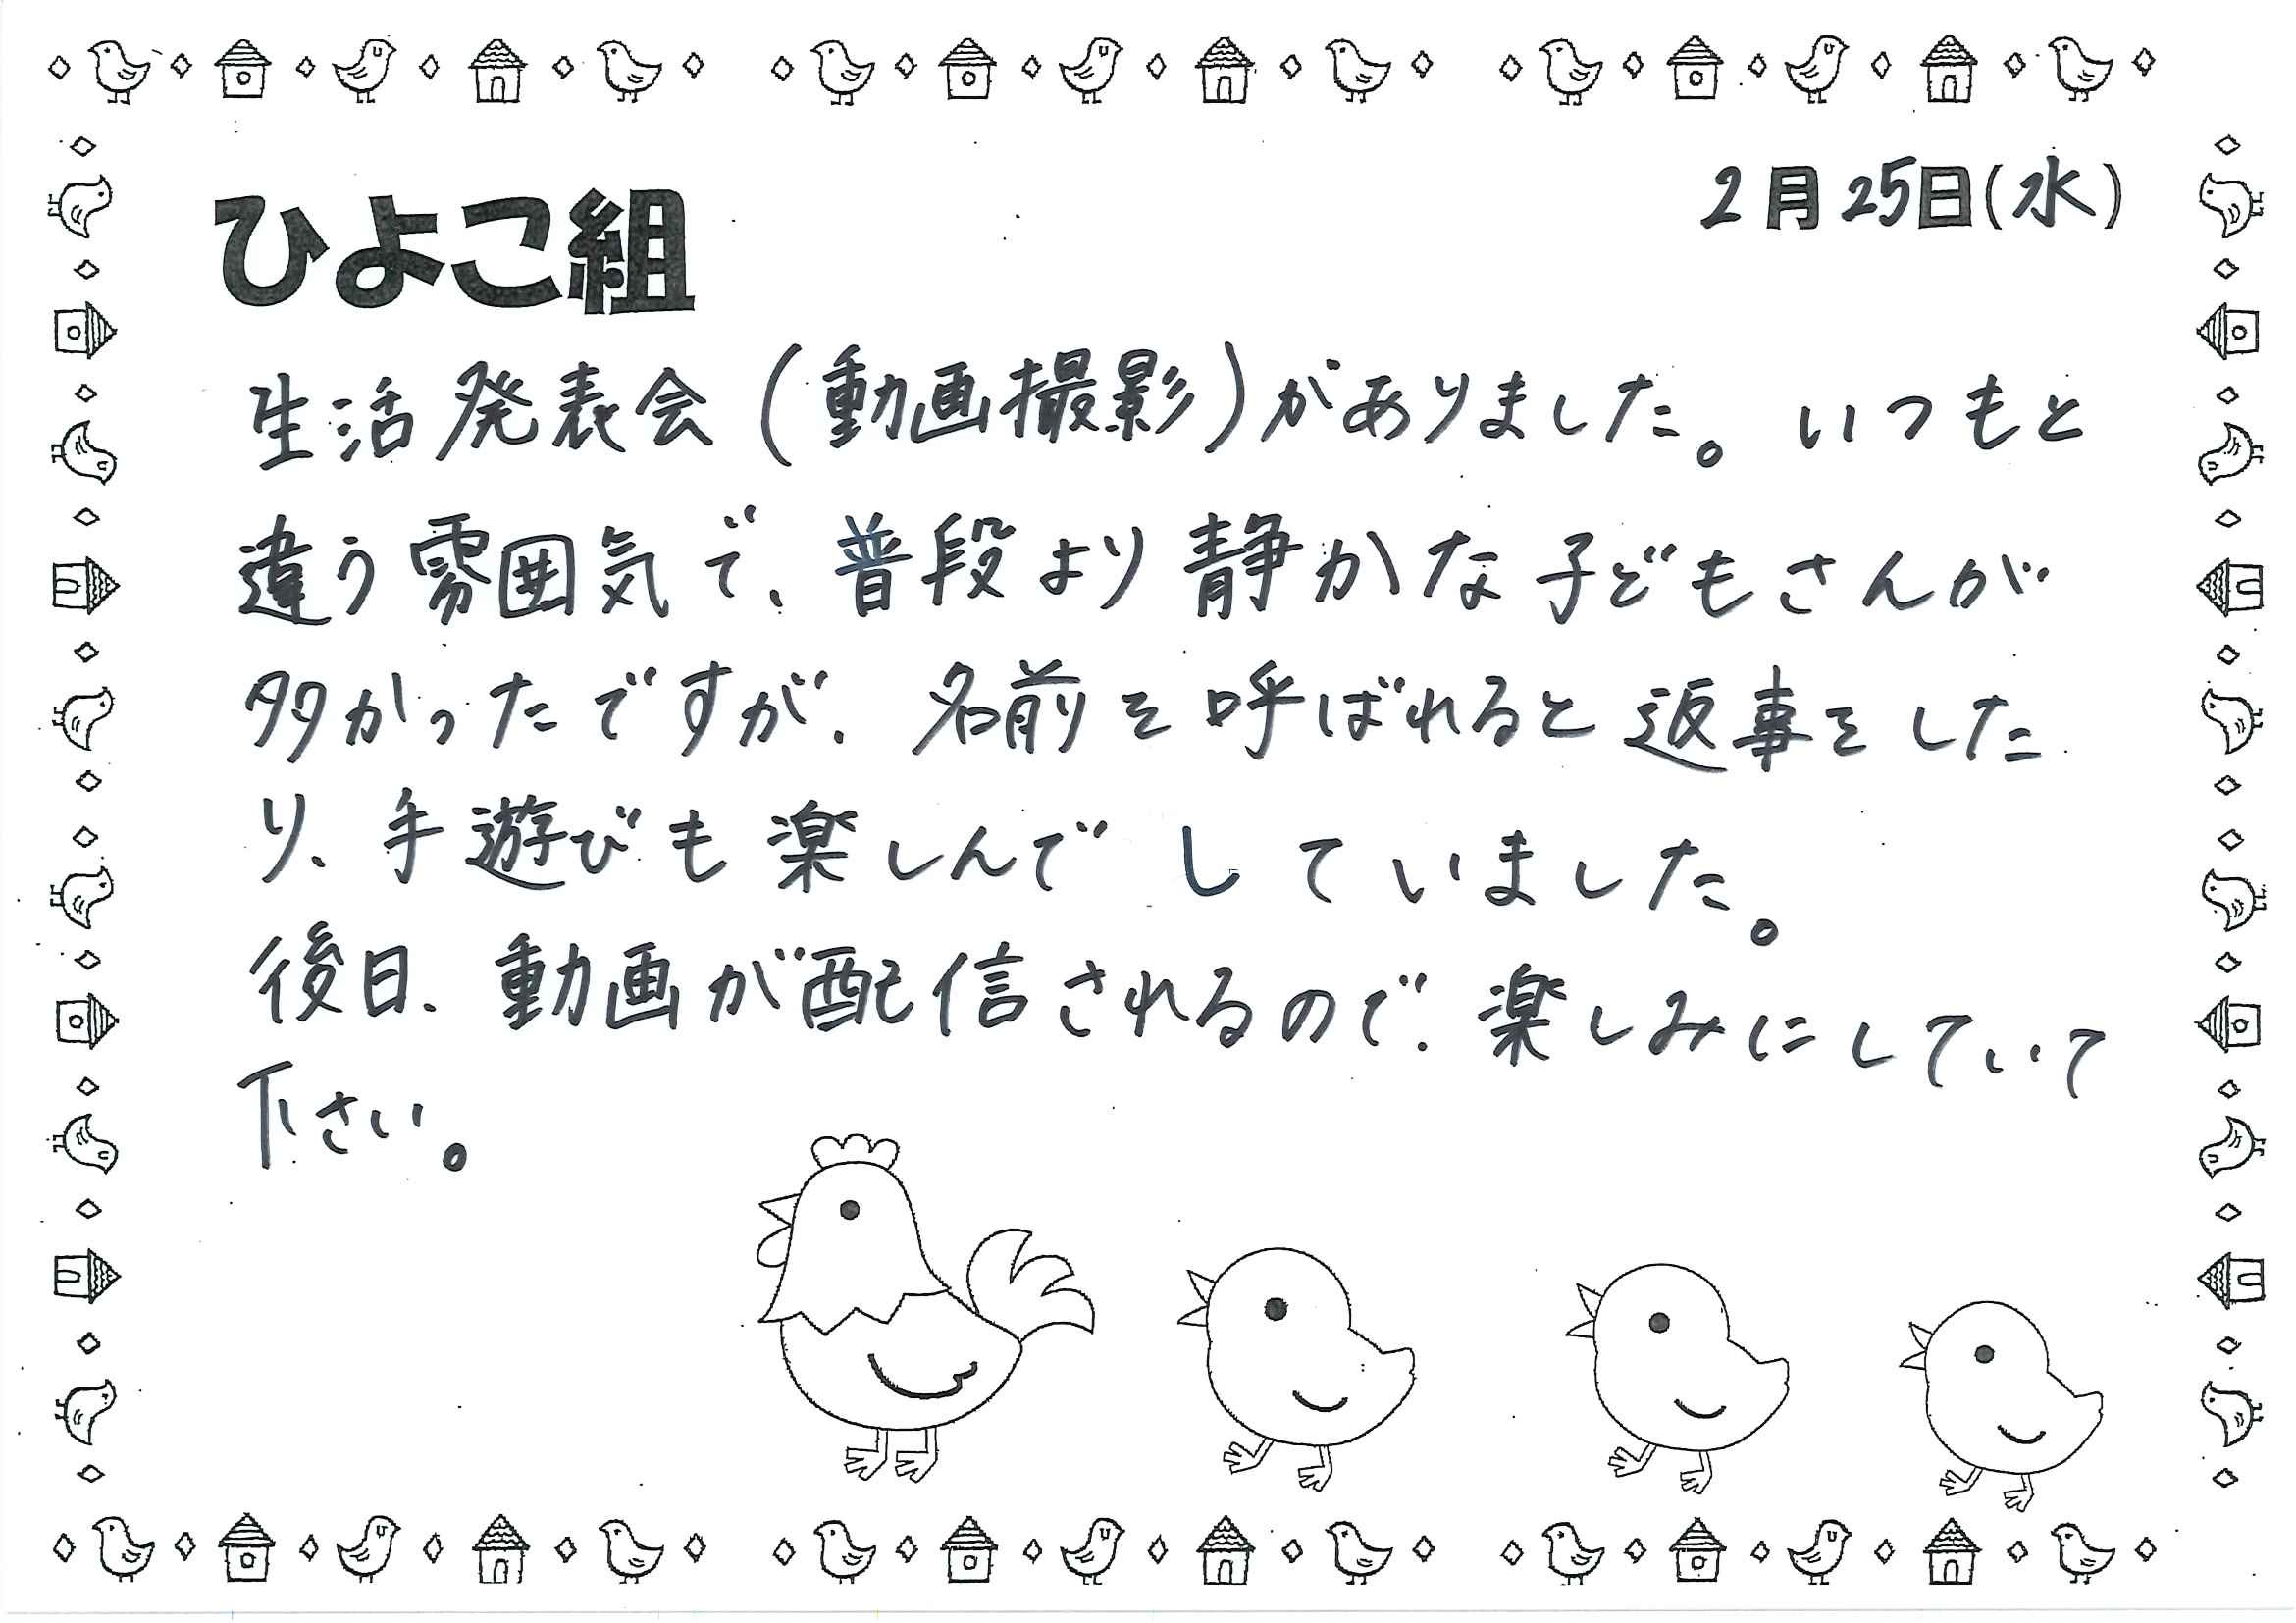 2月25日(水)
ひよこ組
生活発表会(動画撮影)がありました。いつもと
違う雰囲気で、普段より静かな子どもさんが
多かったですが、名前を呼ばれると返事をした
り、手遊びも楽しんでしていました。
後日、動画が配信されるので、楽しみにしていて
下さい。